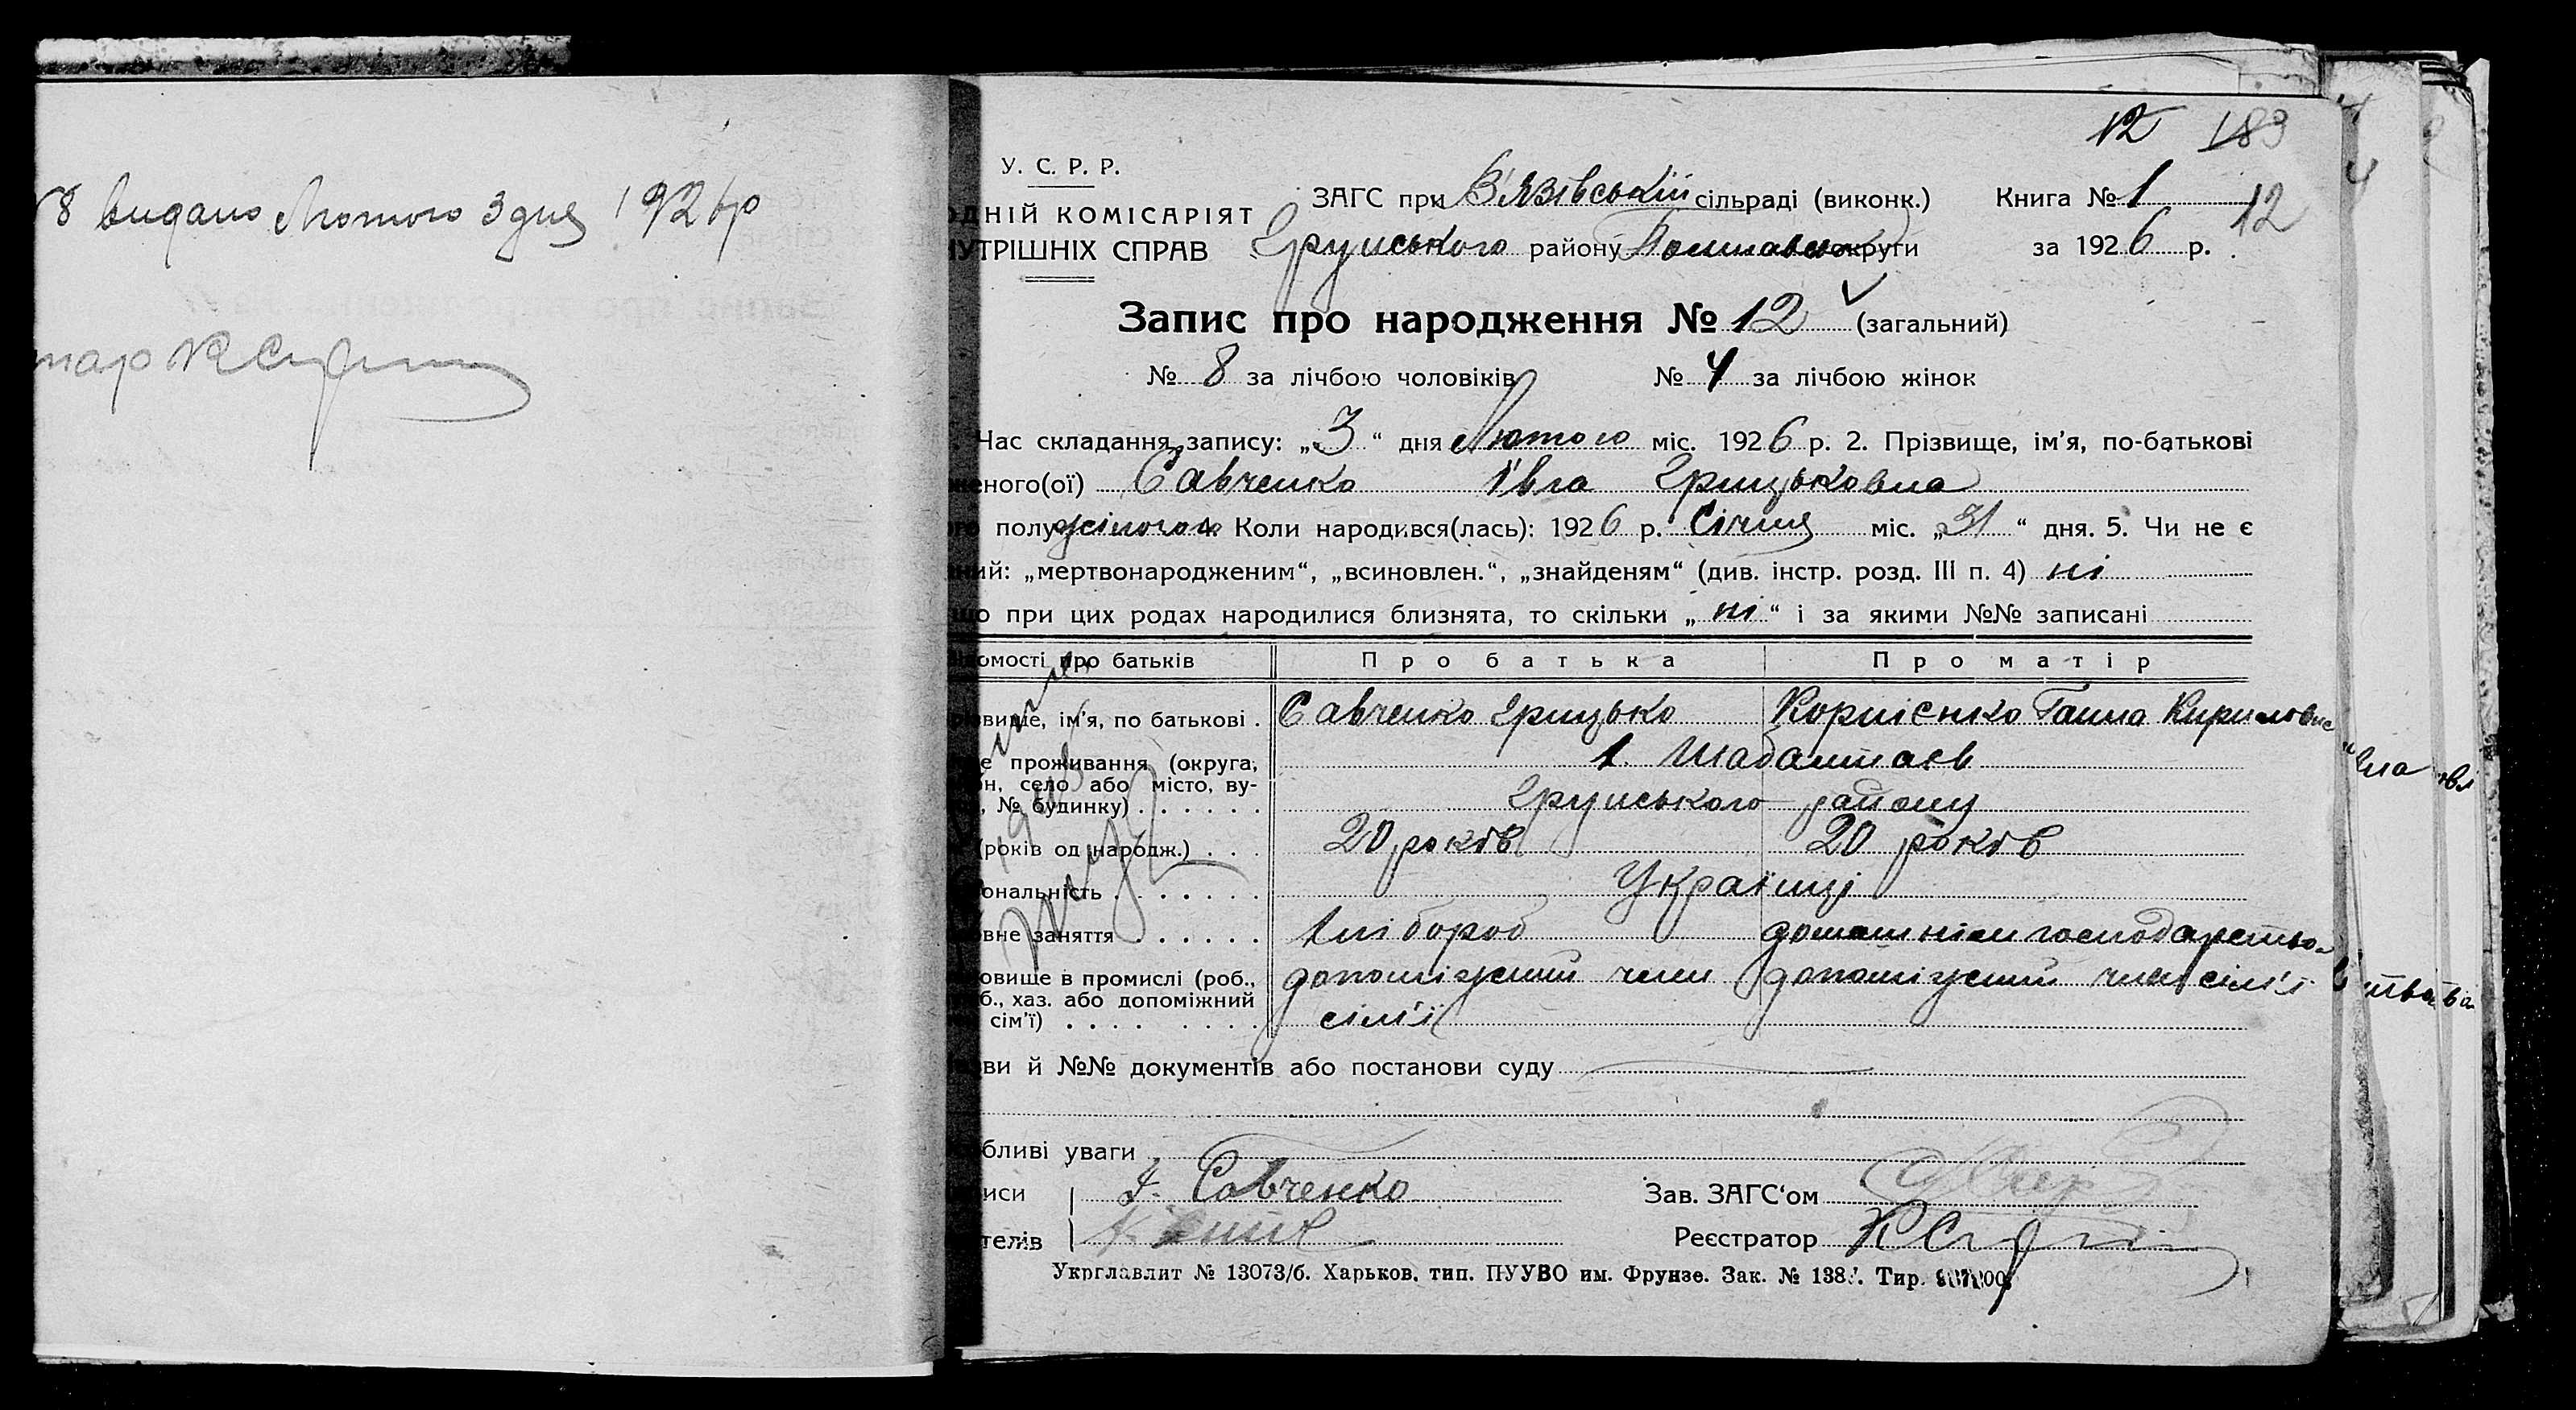 8 видано Лютого 3 дня 1926р
12 183
У. С. Р. Р.
ЗАГС при В'язівській сільраді (виконк.) Книга № 1
ОДНІЙ КОМІСАРІЯТ
12
УТРІШНІХ СПРАВ Грунського району Полтавської округи за 1926 р.
Запис про народження № 12 (загальний)
№ 8 за лічбою чоловіків № 4 за лічбою жінок
Час складання запису: „3“ дня Лютого міс. 1926 р. 2. Прізвище, ім'я, по-батькові
еного(ої) Савченко Ївга Грицьковна
полу жіночого 4. Коли народився(лась): 1926 р. Січня міс. „31“ дня. 5. Чи не є
ний: „мертвонародженим“, „всиновлен.“, „знайденям“ (див. інстр. розд. III п. 4) ні
що при цих родах народилися близнята, то скільки „ні“ і за якими №№ записані
омості про батьків Про батька Про матір
звище, ім'я, по батькові . Савченко Грицько Корнієнко Ганна Кириловна
е проживання (округа, х. Шабалтаєв
он, село або місто, ву-
, № будинку) . . . . . . Грунського району
(років од народж.) . . . 20 років 20 років
ональність . . . . . . . Українці
овне заняття . . . . . . Хлібороб домашнім господарством
овище в промислі (роб., допоміжний член допоміжний член сім'ї
б., хаз. або допоміжний
сім'ї) . . . . . . . . сім'ї
ви й №№ документів або постанови суду
бливі уваги
иси Г. Савченко Зав. ЗАГС'ом
телів Реєстратор
Укрглавлит № 13073/б. Харьков, тип. ПУУВО им. Фрунзе. Зак. № 138 . Тир.